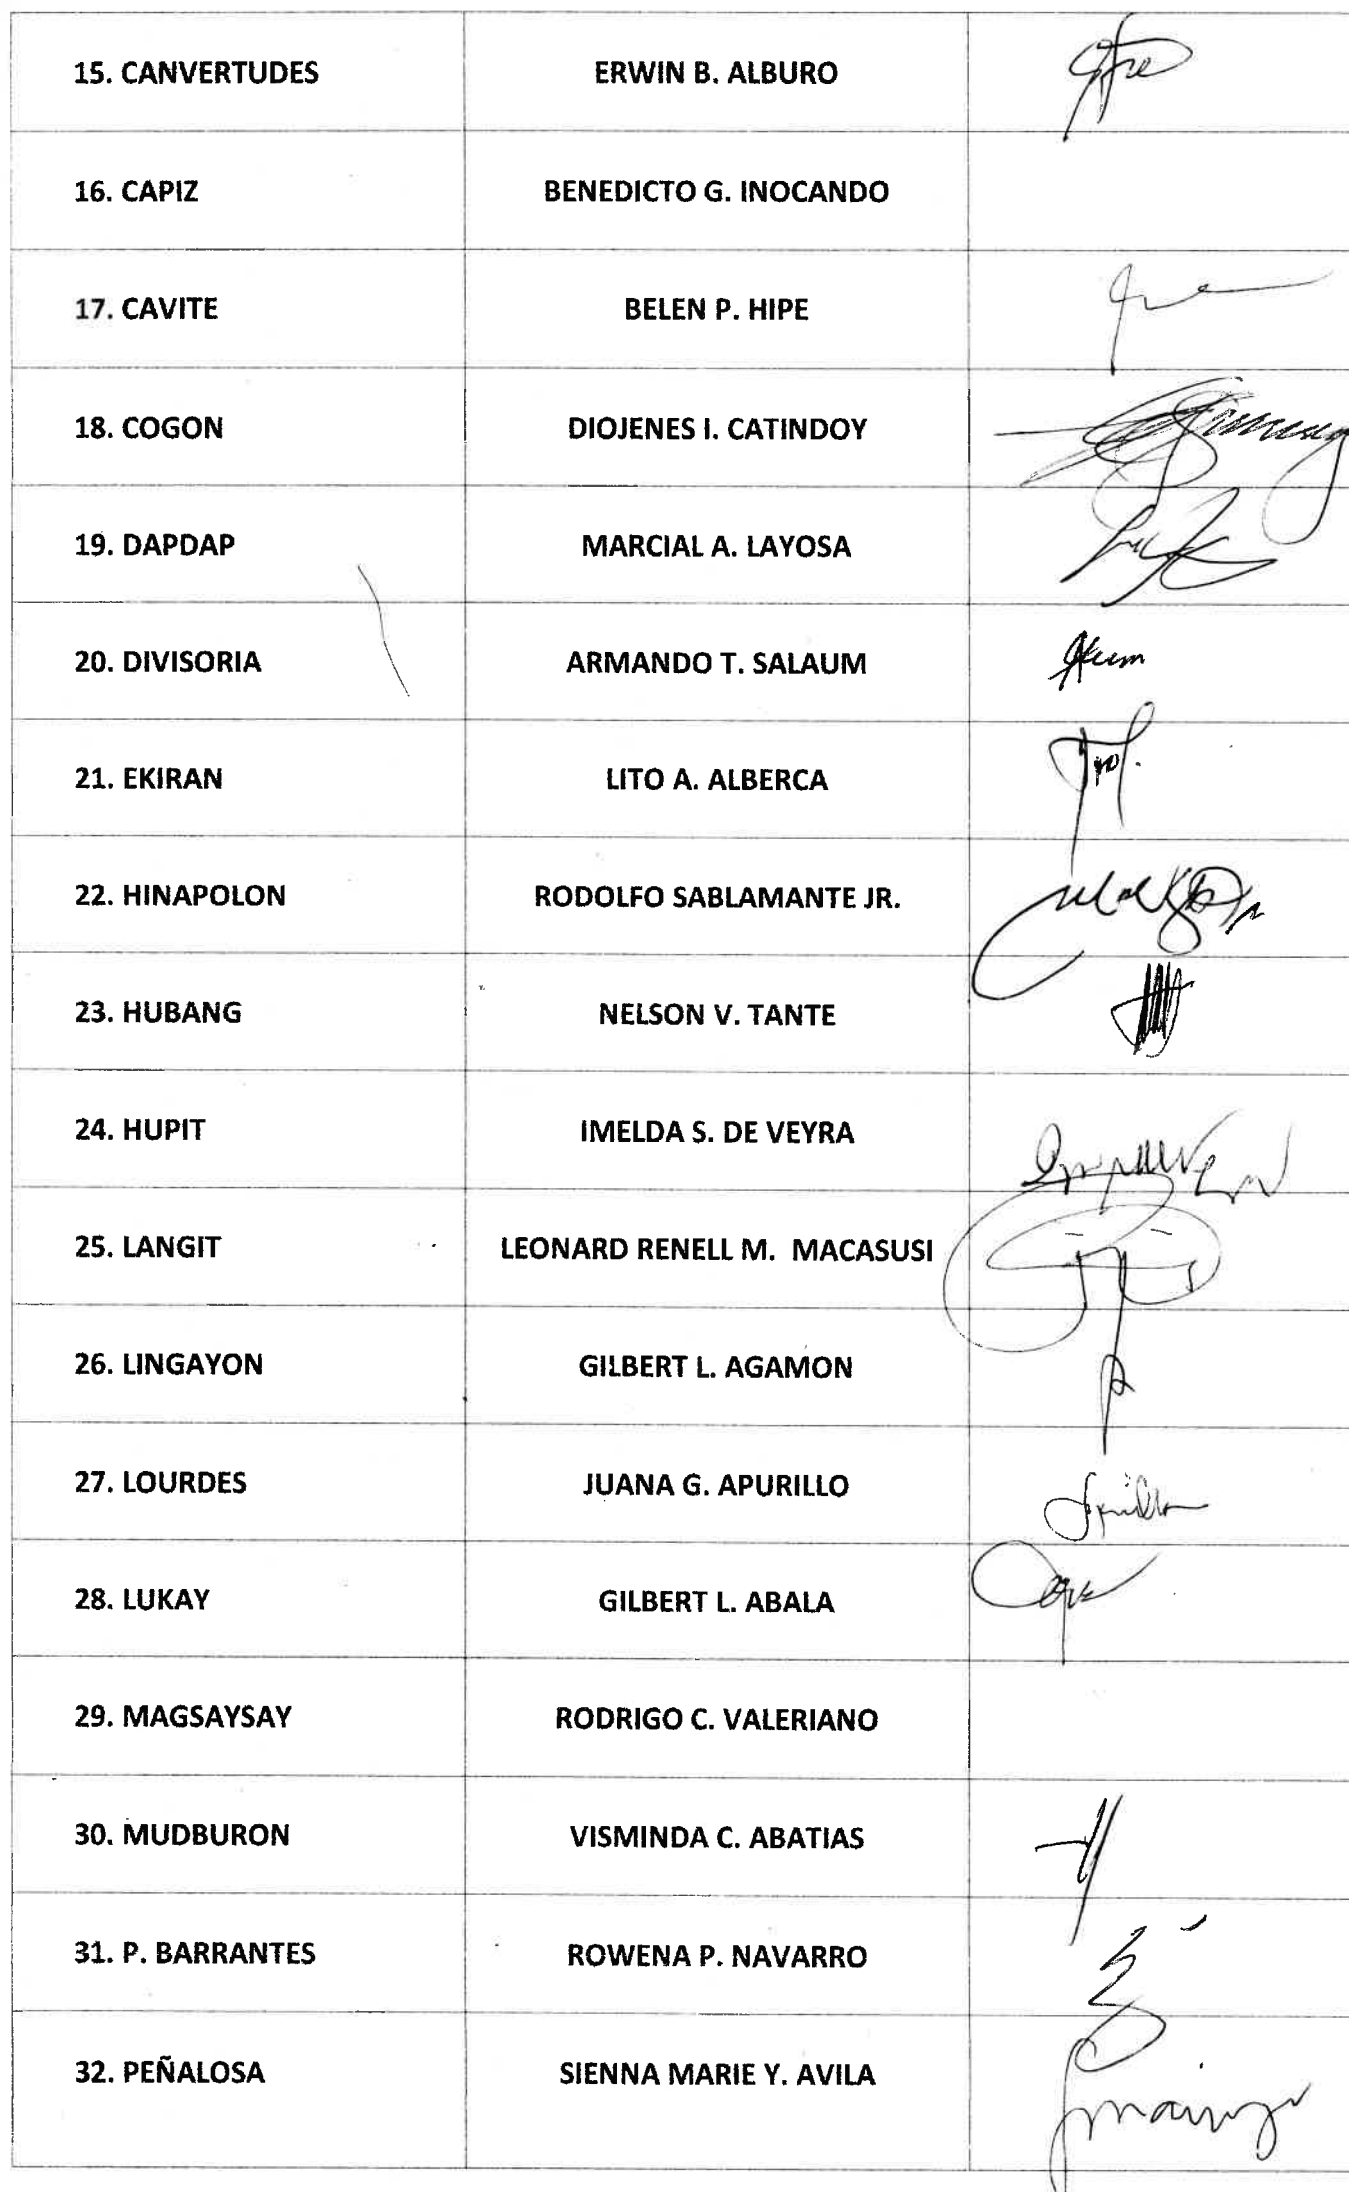 15. CANVERTUDES ERWIN B. ALBURO
16. CAPIZ BENEDICTO G. INOCANDO
17. CAVITE BELEN P. HIPE
18. COGON DIOJENES I. CATINDOY
19. DAPDAP MARCIAL A. LAYOSA
20. DIVISORIA ARMANDO T. SALAUM
21. EKIRAN LITO A. ALBERCA
22. HINAPOLON RODOLFO SABLAMANTE JR.
23. HUBANG NELSON V. TANTE
24. HUPIT IMELDA S. DE VEYRA
25. LANGIT LEONARD RENELL M. MACASUSI
26. LINGAYON GILBERT L. AGAMON
27. LOURDES JUANA G. APURILLO
28. LUKAY GILBERT L. ABALA
29. MAGSAYSAY RODRIGO C. VALERIANO
30. MUDBURON VISMINDA C. ABATIAS
31. P. BARRANTES ROWENA P. NAVARRO
32. PEÑALOSA SIENNA MARIE Y. AVILA